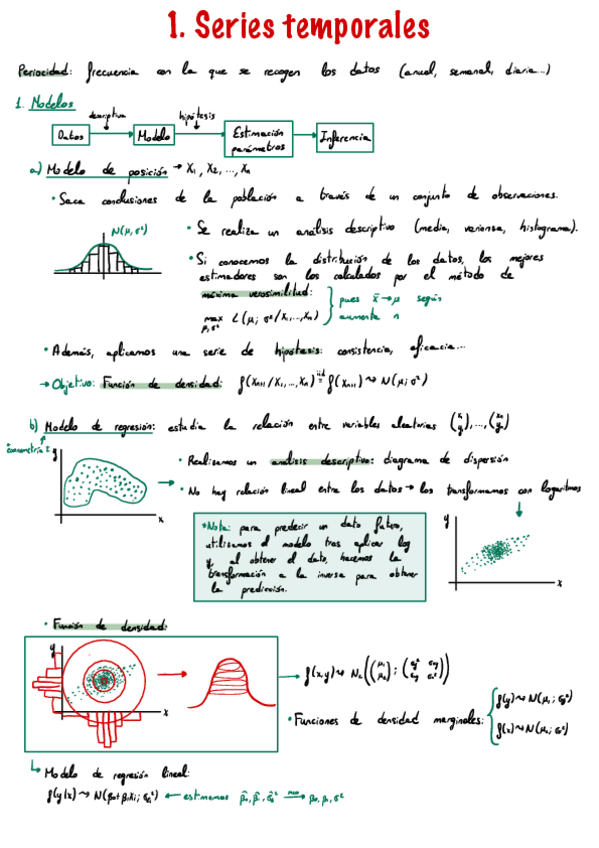 1. Series temporales
Periocidad: frecuencia con la que se recogen los datos (anual, semanal, diaria...)
1. Modelos
descriptiva hipótesis
Datos Modelo Estimación parámetros Inferencia
a) Modelo de posición → X₁, X₂, ..., Xn
• Saca conclusiones de la población a través de un conjunto de observaciones.
N(μ, σ²)
• Se realiza un análisis descriptivo (media, varianza, histograma).
• Si conocemos la distribución de los datos, los mejores
estimadores son los calculados por el método de
máxima verosimilitud:
max L(μ; σ²/X₁,...,Xn)
μ, σ²
pues x̄ → μ según
aumenta n
• Además, aplicamos una serie de hipótesis: consistencia, eficacia...
→ Objetivo: Función de densidad: f(Xn+1/X₁,...,Xn) iid= f(Xn+1) ~> N(μ; σ²)
b) Modelo de regresión: estudia la relación entre variables aleatorias
econometría I
y
x
• Realizamos un análisis descriptivo: diagrama de dispersión
• No hay relación lineal entre los datos → los transformamos con logaritmos
*Nota: para predecir un dato futuro,
utilizamos el modelo tras aplicar log
y al obtener el dato, hacemos la
transformación a la inversa para obtener
la predicción.
y
x
• Función de densidad:
y
x
f(x,y) ~> N₂
• Funciones de densidad marginales:
f(y) ~> N
f(x) ~> N
Modelo de regresión lineal:
f(y/x) ~> N ← estimamos